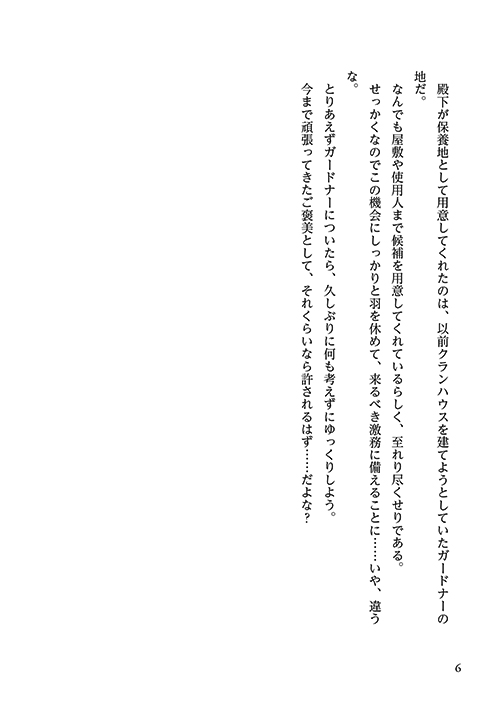 殿下が保養地として用意してくれたのは、以前クランハウスを建てようとしていたガードナーの
地だ。
なんでも屋敷や使用人まで候補を用意してくれているらしく、至れり尽くせりである。
せっかくなのでこの機会にしっかりと羽を休めて、来るべき激務に備えることに……いや、違う
な。
とりあえずガードナーについたら、久しぶりに何も考えずにゆっくりしよう。
今まで頑張ってきたご褒美として、それくらいなら許されるはず……だよな？
6